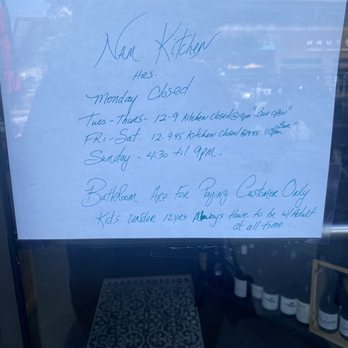 Nam Kitchen
HRS.
Monday Closed
Tues-Thurs- 12-9 Kitchen closed@9pm "Bar open"
FRi-Sat. 12-9:45 Kitchen closed@9:45
Sunday - 4:30 til 9pm.
BathRoom Are For Paying Customer Only
Kids under 12yrs Always Have to be w/Adult
at all time...